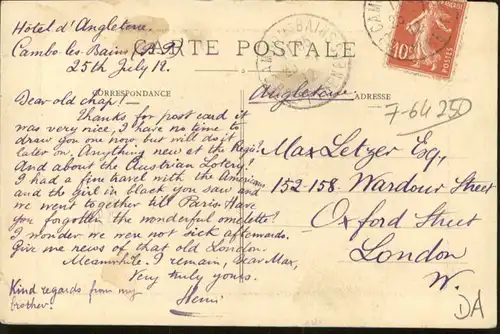 Hôtel d'Angleterre.
Cambo les Bains (B.P.)
25th July 12.
CARTE POSTALE
CORRESPONDANCE
ADRESSE
Dear old chap!
Thanks for post card it
was very nice, I have no time to
draw you one now but will do it
later on. Anything new at the
And about the Austrian Lottery!
I had a fine travel with the Americans
and the girl in black you saw and
we went together till Paris. Have
you forgotten the wonderful omelette!
I wonder we were not sick afterwards.
Give me news of that old London.
Meanwhile I remain, dear Max,
Very truly yours.
Henri
Kind regards from my
brother.
Angleterre.
7-64 250
Max Letzer Esq,
152-158. Wardour Street
Oxford Street
London
W.
DA
10